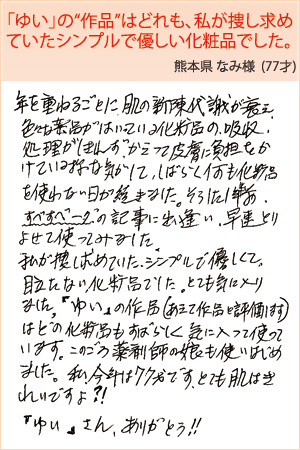 「ゆい」の“作品”はどれも、私が捜し求め
ていたシンプルで優しい化粧品でした。
熊本県 なみ様 (77才)
年を重ねるごとに、肌の新陳代謝が衰え、
色々な薬品がはいている化粧品の、吸収、
処理がほんず、かえって皮膚に負担をか
けている様な気がして、しばらく何も化粧品
を使わない日が続きました。そうした1年前、
すべすべ の記事に出逢い、早速とり
よせて使ってみました。
私が捜し求めていた、シンプルで優しくて、
目立たない化粧品でした。とても気に入り
ました。『ゆい』の作品(あえて作品と評価します)
はどの化粧品もすばらしく、気に入って使って
います。このごろ薬剤師の娘も使いはじめ
ました。私、今年は77才です、とても肌はき
れいですよ?!
『ゆい』さん、ありがとう!!